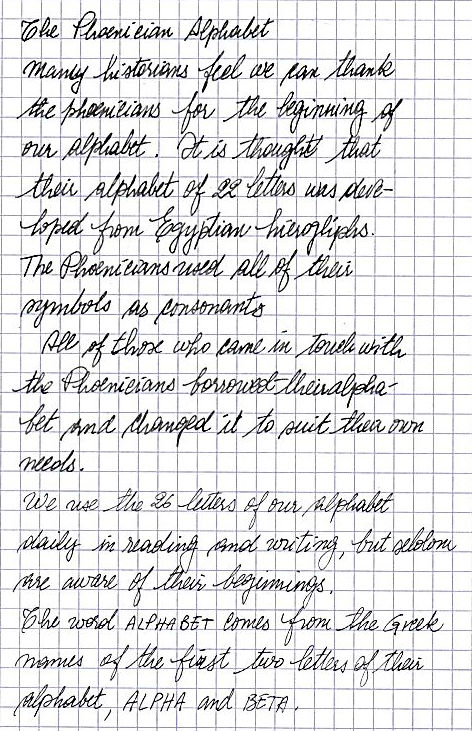 The Phoenician Alphabet
many historians feel we can thank
the phoenicians for the beginning of
our alphabet. It is thought that
their alphabet of 22 letters was deve-
loped from Egyptian hierogliphs.
The Phoenicians used all of their
symbols as consonants
All of those who came in touch with
the Phoenicians borrowed their alpha-
bet and changed it to suit their own
needs.
We use the 26 letters of our alphabet
daily in reading and writing, but seldom
are aware of their beginnings.
The word ALPHABET comes from the Greek
names of the first two letters of their
alphabet, ALPHA and BETA.